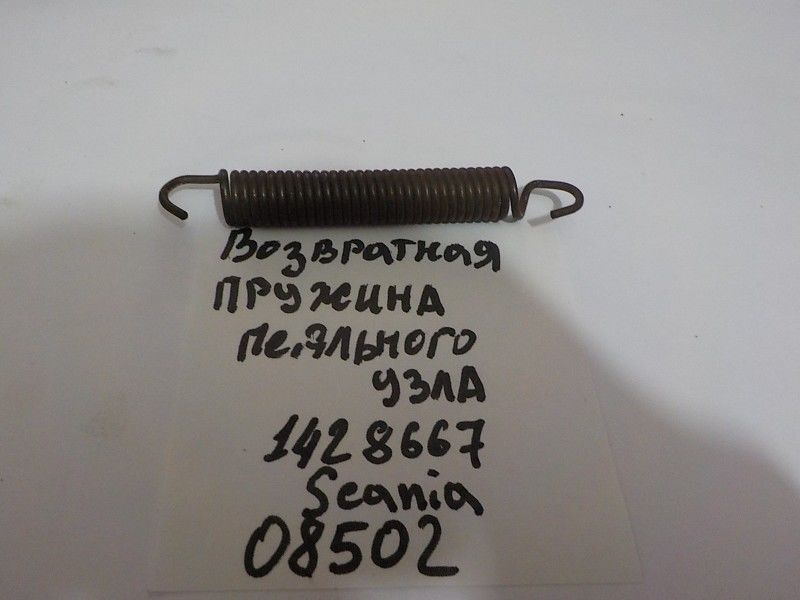 Возвратная
ПРУЖИНА
педального
УЗЛА
1428667
Scania
08502